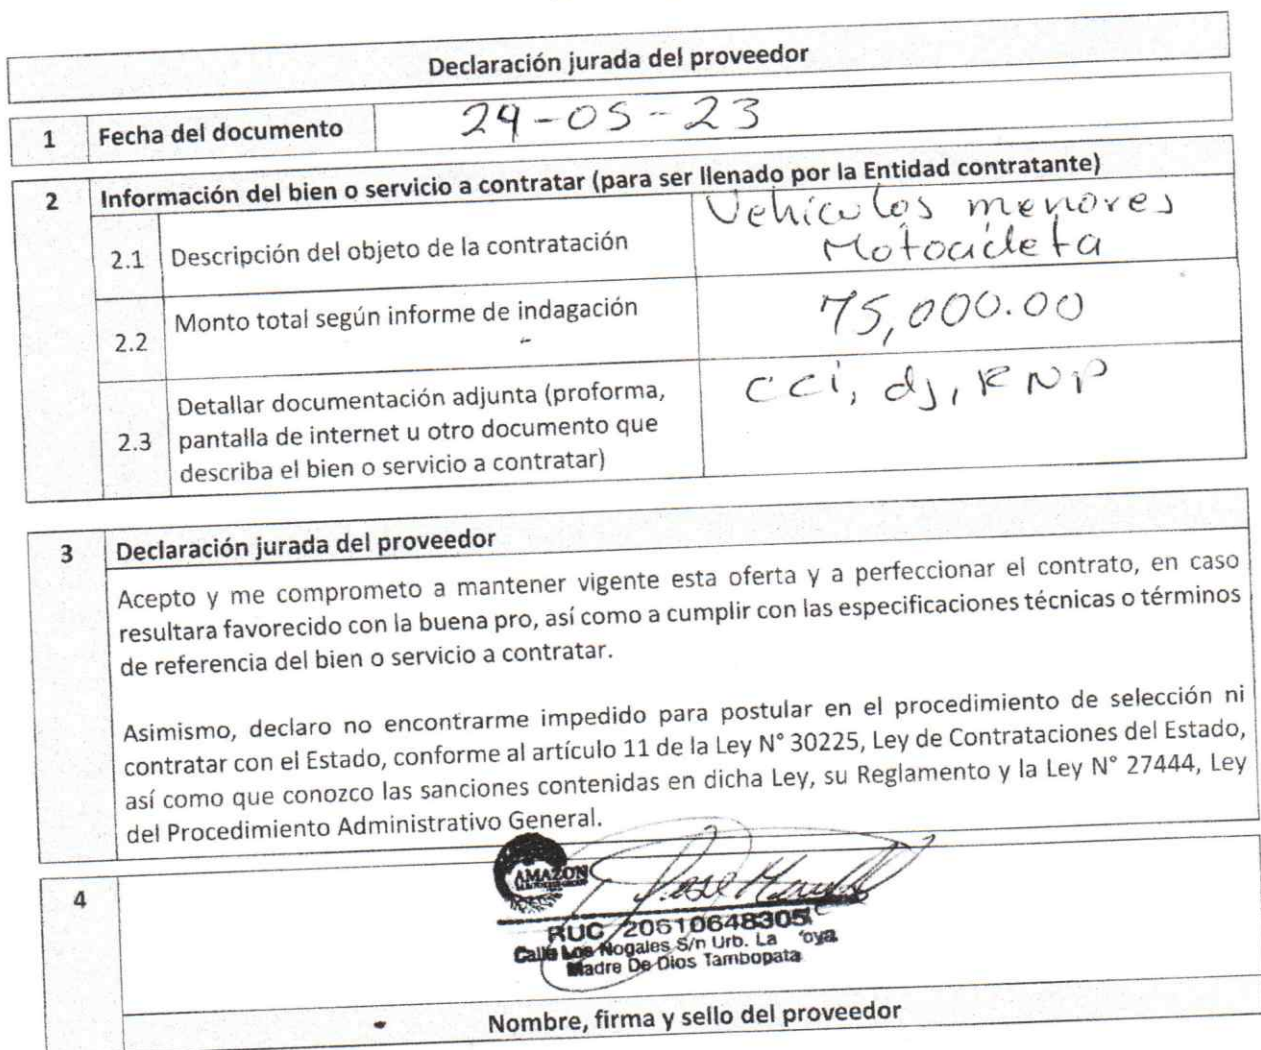 Declaración jurada del proveedor
1 Fecha del documento 29-05-23
2 Información del bien o servicio a contratar (para ser llenado por la Entidad contratante)
2.1 Descripción del objeto de la contratación
Vehículos menores
Motocicleta
2.2 Monto total según informe de indagación 75,000.00
2.3 Detallar documentación adjunta (proforma,
pantalla de internet u otro documento que
describa el bien o servicio a contratar)
CCi, dj, RNP
3 Declaración jurada del proveedor
Acepto y me comprometo a mantener vigente esta oferta y a perfeccionar el contrato, en caso
resultara favorecido con la buena pro, así como a cumplir con las especificaciones técnicas o términos
de referencia del bien o servicio a contratar.
Asimismo, declaro no encontrarme impedido para postular en el procedimiento de selección ni
contratar con el Estado, conforme al artículo 11 de la Ley N° 30225, Ley de Contrataciones del Estado,
así como que conozco las sanciones contenidas en dicha Ley, su Reglamento y la Ley N° 27444, Ley
del Procedimiento Administrativo General.
4
AMAZON
RUC 20610648305
Calle Los Nogales S/n Urb. La
Madre De Dios Tambopata
Nombre, firma y sello del proveedor